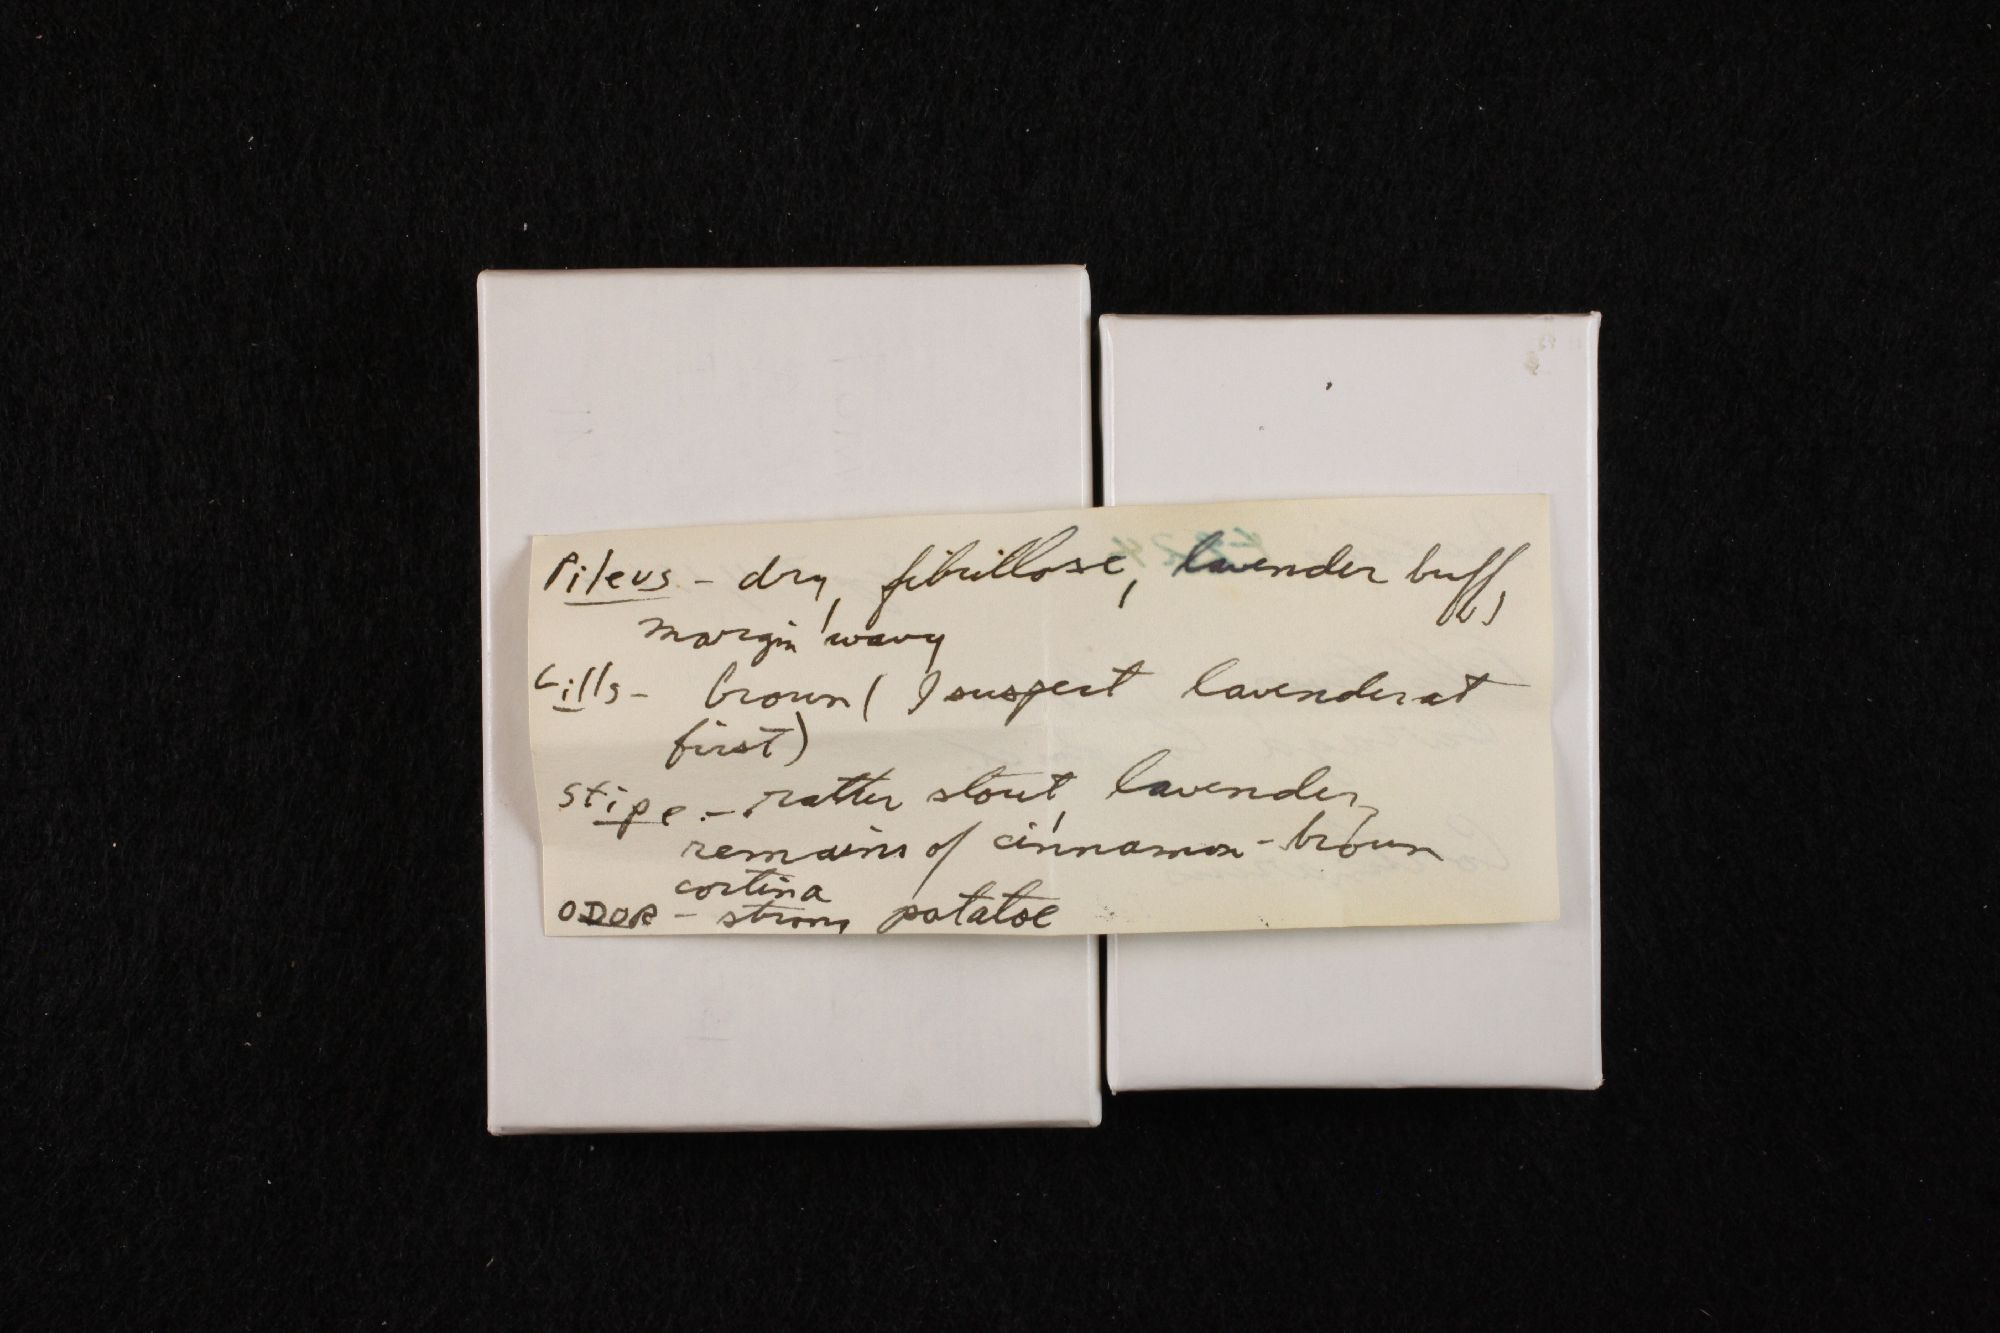 Pileus - dry, fibrillose, lavender buff,
margin wavy
Gills - brown ( I suspect lavender at
first)
Stipe - rather stout, lavender,
remains of cinnamon-brown
cortina
ODOR - strong potatoe